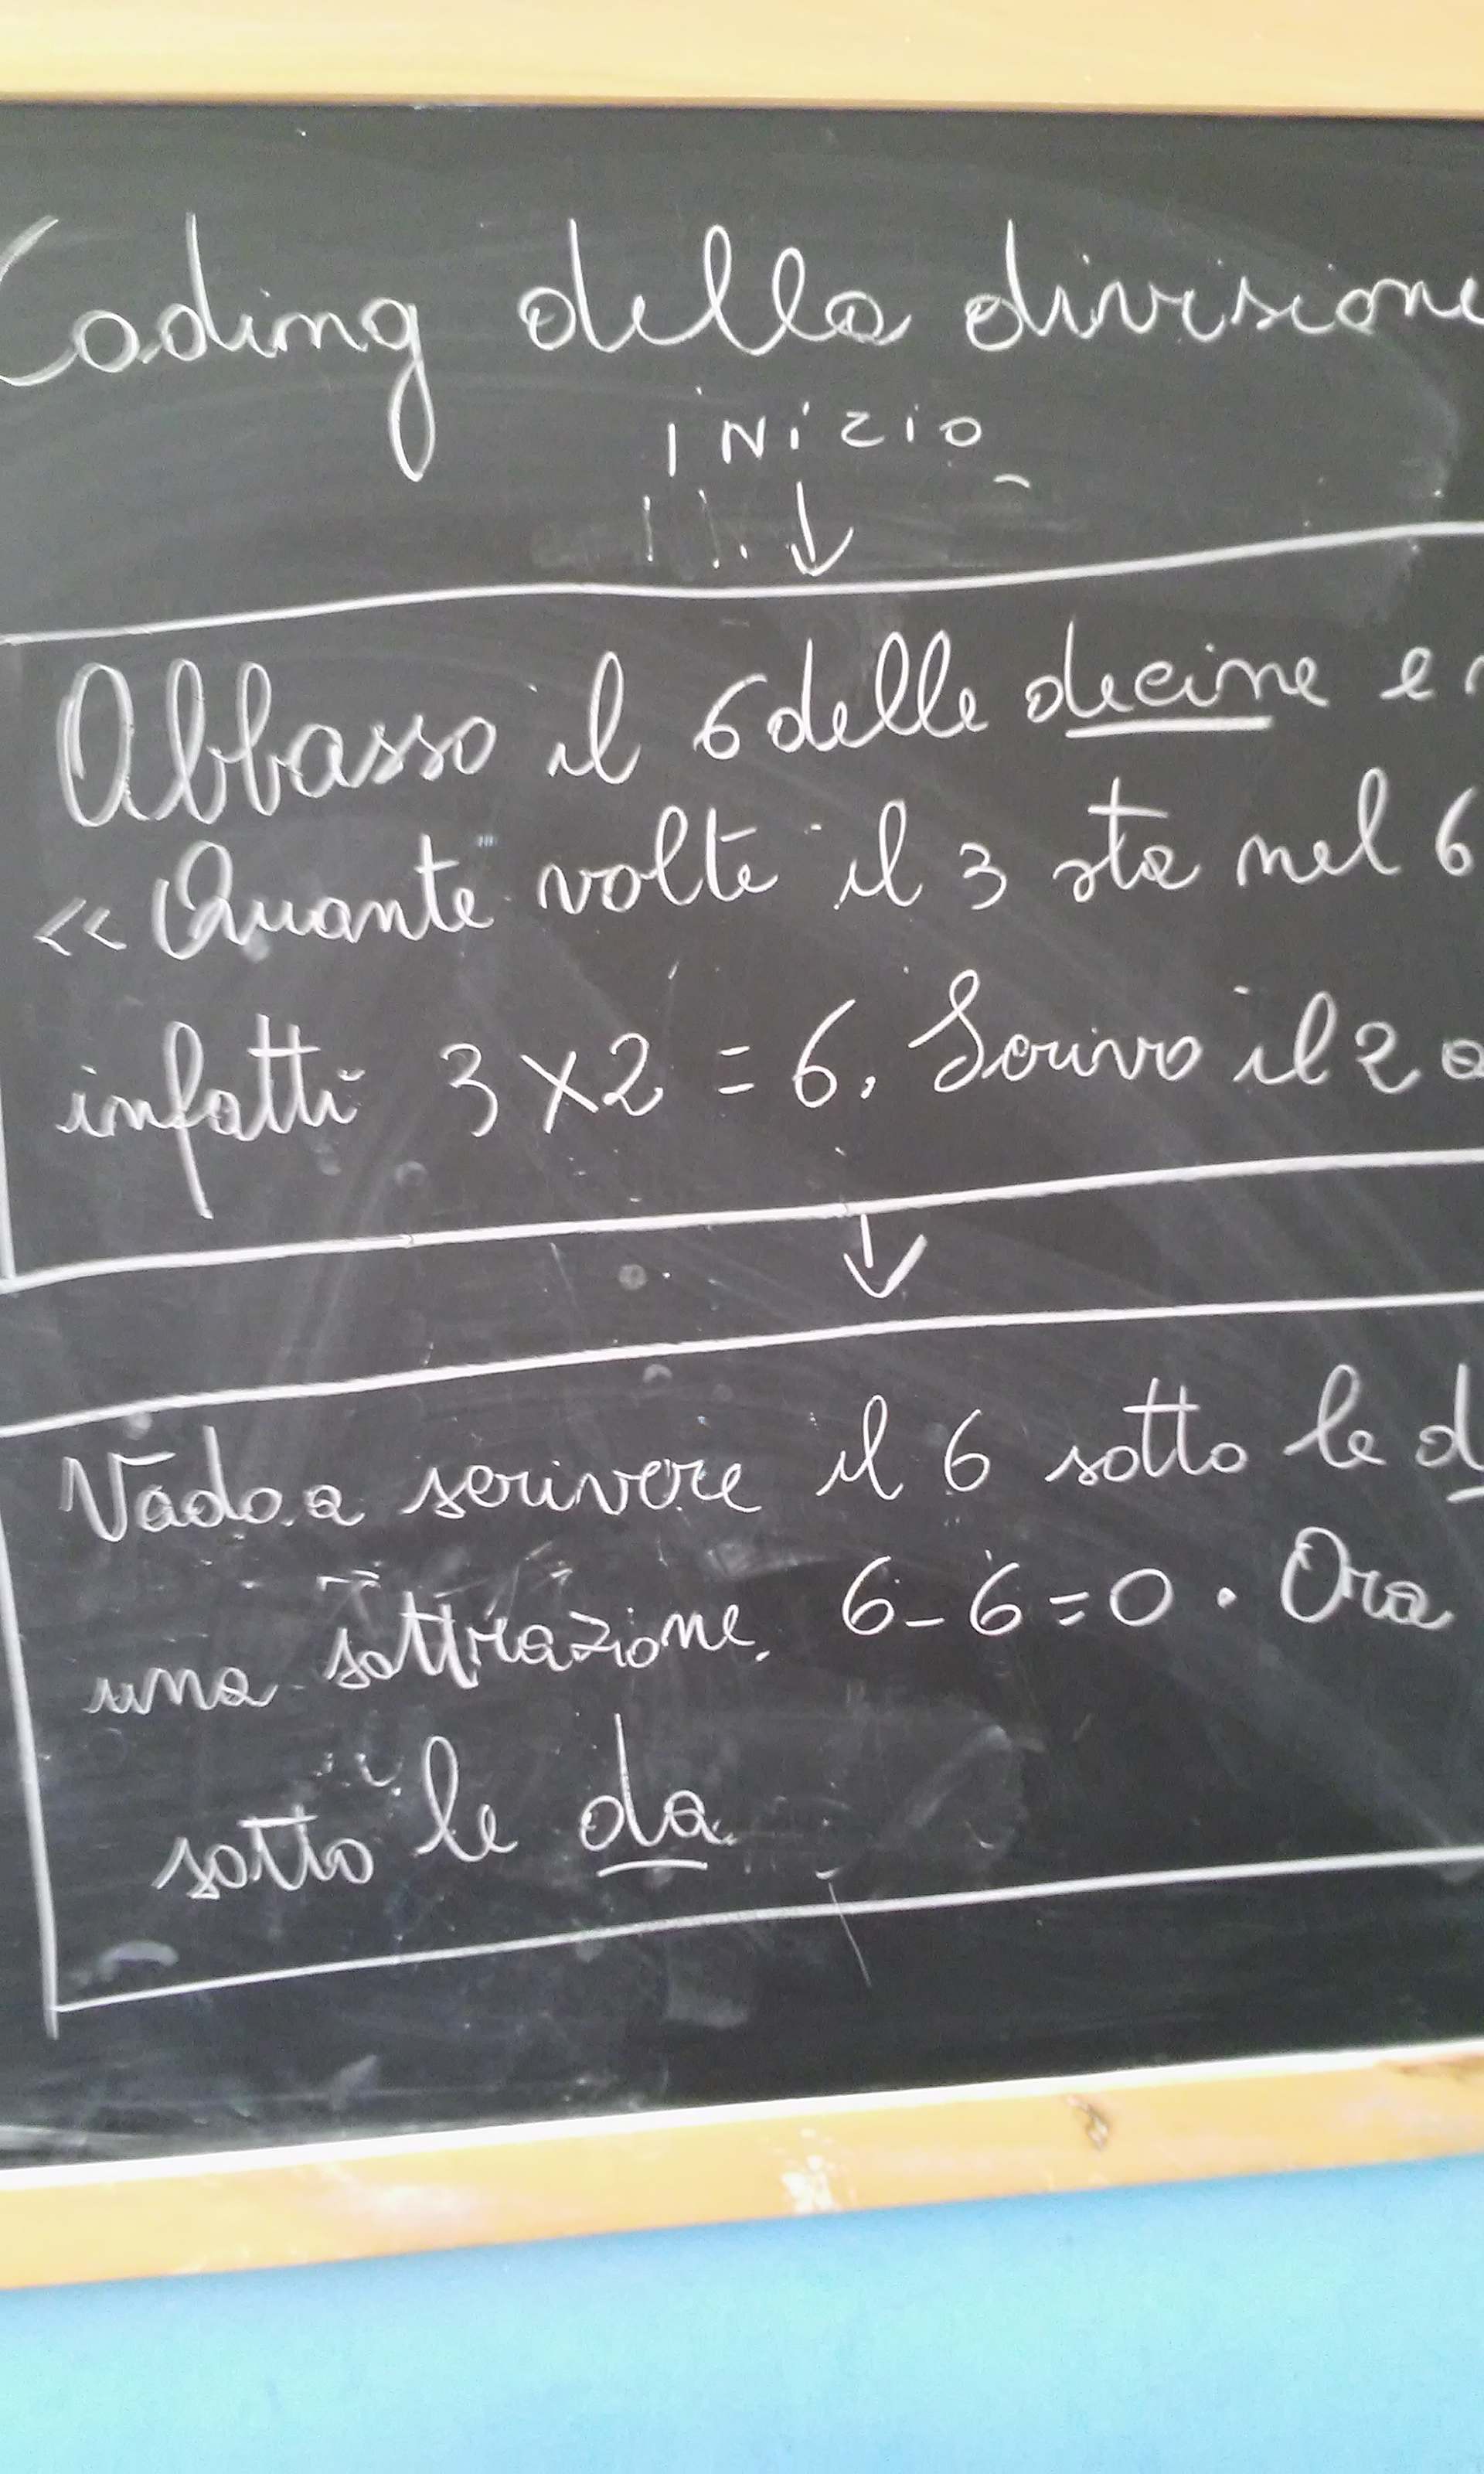 Coding della divisione
INIZIO
Abbasso il 6 delle decine e
<< Quante volte il 3 sta nel 6
infatti 3 x 2 = 6. Scrivo il 2 a
Vado a scrivere il 6 sotto le d
una sottrazione. 6 - 6 = 0. Ora
sotto le da